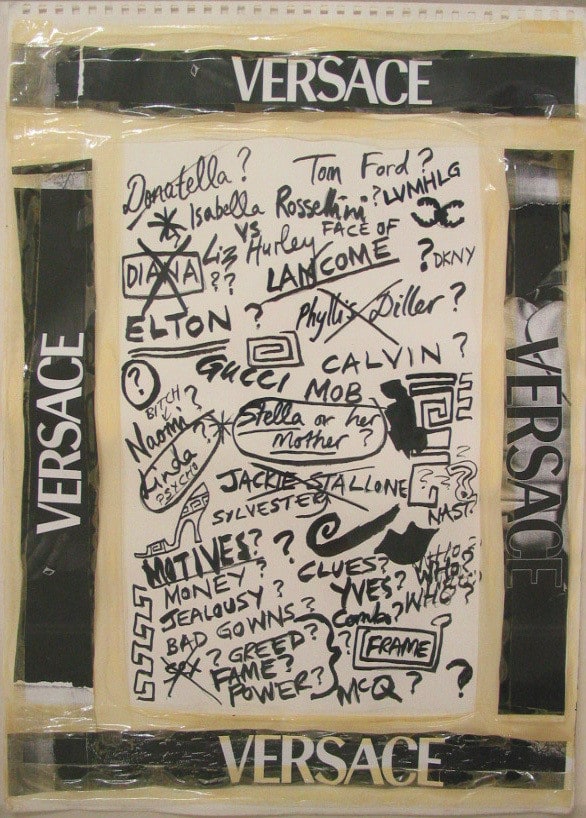 VERSACE
VERSACE
VERSACE
Donatella? Tom Ford?
Isabella Rossellini? LVMHLG
VS FACE OF
DIANA ?? Liz Hurley LANCOME ? DKNY
ELTON ? Phyllis Diller?
? GUCCI CALVIN?
BITCH MOB
Naomi? ? Stella or her
Mother?
Linda
PSYCHO JACKIE STALLONE ? ?
SYLVESTER NAST?
MOTIVES? ? CLUES? WHO?
MONEY? YVES? WHO?
JEALOUSY? Combo? WHO?
BAD GOWNS? ? FRAME
SEX ? GREED?
FAME?
POWER? McQ? ?
VERSACE